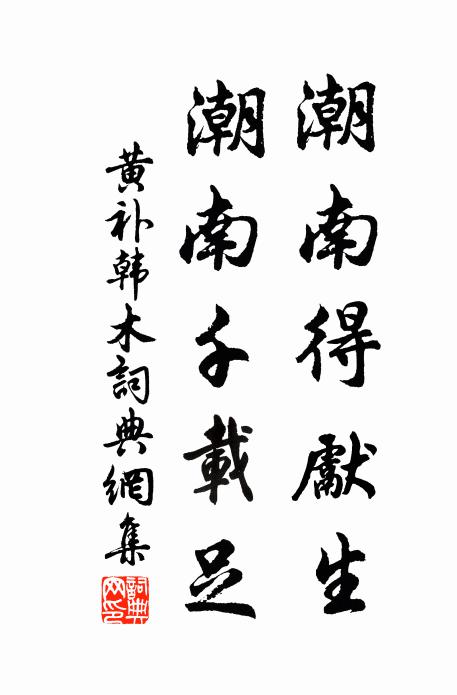 潮南得獻生
潮南千載足
黄补韩木詞典網集
詞典网印